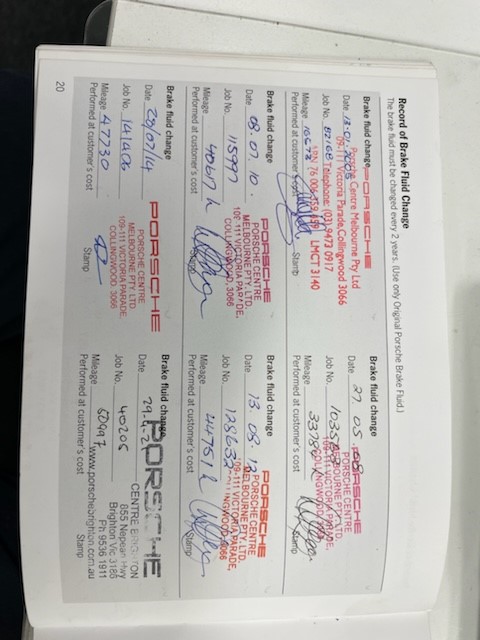 Record of Brake Fluid Change
The brake fluid must be changed every 2 years. (Use only Original Porsche Brake Fluid.)
Brake fluid change
PORSCHE
Porsche Centre Melbourne Pty Ltd
Date
109-111 Victoria Parade, Collingwood 3066
Job No. 82168 Telephone: (03) 9473 0917
Mileage
LMCT 3140
Performed at customer's cost
Stamp
Brake fluid change
PORSCHE
Date 27. 05. 08
PORSCHE CENTRE
MELBOURNE PTY. LTD.
Job No.
Mileage
Performed at customer's cost
Stamp
Brake fluid change
PORSCHE
Date 08. 07. 10.
PORSCHE CENTRE
MELBOURNE PTY. LTD.
Job No. 115997
109-111 VICTORIA PARADE,
COLLINGWOOD. 3066
Mileage
Performed at customer's cost
Stamp
Brake fluid change
PORSCHE
Date 13. 08. 12
PORSCHE CENTRE
MELBOURNE PTY. LTD.
Job No. 128632
109-111 VICTORIA PARADE,
COLLINGWOOD. 3066
Mileage 44751
Performed at customer's cost
Stamp
Brake fluid change
PORSCHE
Date 29/07/14
PORSCHE CENTRE
MELBOURNE PTY. LTD.
Job No. 141406
109-111 VICTORIA PARADE,
COLLINGWOOD. 3066
Mileage 47730
Performed at customer's cost
Stamp
Brake fluid change
PORSCHE
Date
CENTRE BRIGHTON
Job No. 40205
855 Nepean Hwy
Brighton Vic 3186
Ph 9536 1911
Mileage 50997
www.porschebrighton.com.au
Performed at customer's cost
Stamp
20